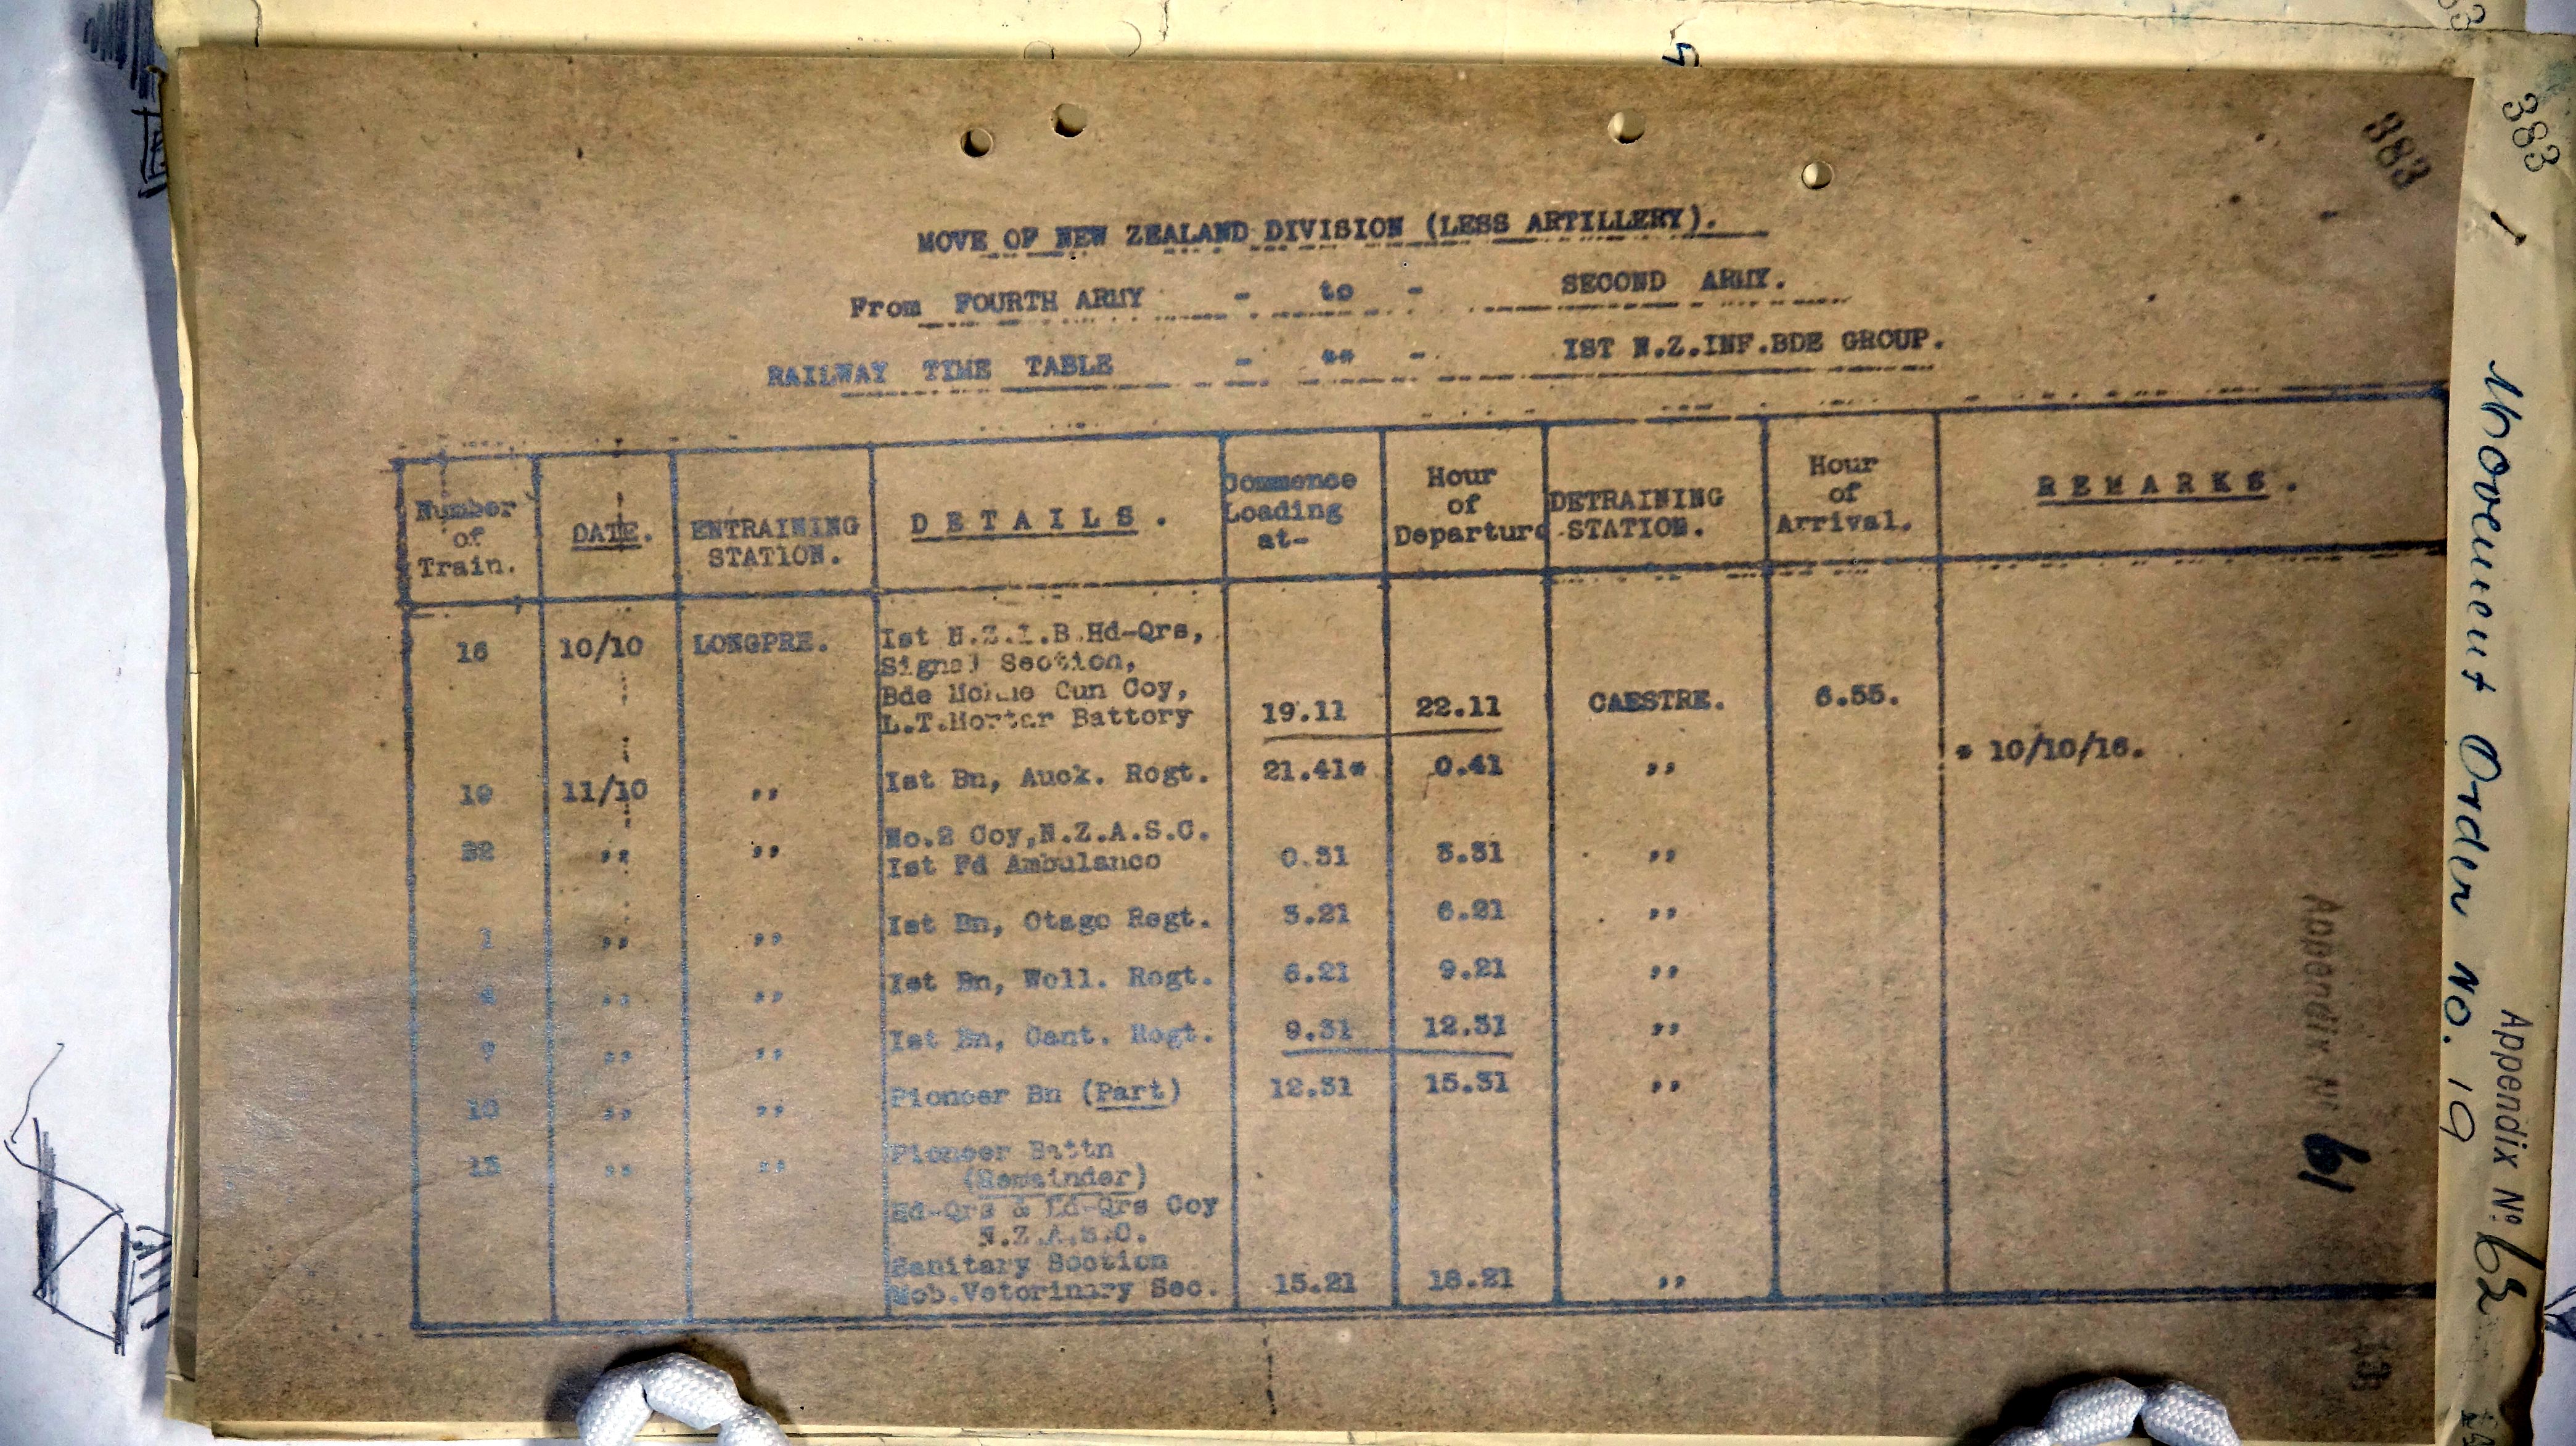 383
383
MOVE OF NEW ZEALAND DIVISION (LESS ARTILLERY).
From FOURTH ARMY - to - SECOND ARMY.
RAILWAY TIME TABLE - ** - IST N.Z.INF.BDE GROUP.
Number of Train. DATE. ENTRAINING STATION. DETAILS. Commence Loading at- Hour of Departure DETRAINING STATION. Hour of Arrival. REMARKS.
16 10/10 LONGPRE. Ist N.Z.I.B.Hd-Qrs,
Signal Section,
Bde Gun Coy,
L.T.Mortar Battery 19.11 22.11 CAESTRE. 6.55.
19 11/10 ,, Ist Bn, Auck. Regt. 21.41* 0.41 ,, * 10/10/16.
22 ,, ,, No.2 Coy,N.Z.A.S.C.
Ist Fd Ambulance 0.31 3.31 ,,
1 ,, ,, Ist Bn, Otago Regt. 3.21 6.21 ,,
4 ,, ,, Ist Bn, Well. Regt. 6.21 9.21 ,,
7 ,, ,, Ist Bn, Cant. Regt. 9.31 12.31 ,,
10 ,, ,, Pioneer Bn (Part) 12.31 15.31 ,,
13 ,, ,, Pioneer Battn
(Remainder)
Hd-Qrs & Hd-Qrs Coy
N.Z.A.S.C.
Sanitary Section
Mob.Veterinary Sec. 15.21 18.21 ,,
Appendix Nº 61
Movement Order No. 19
Appendix Nº 62